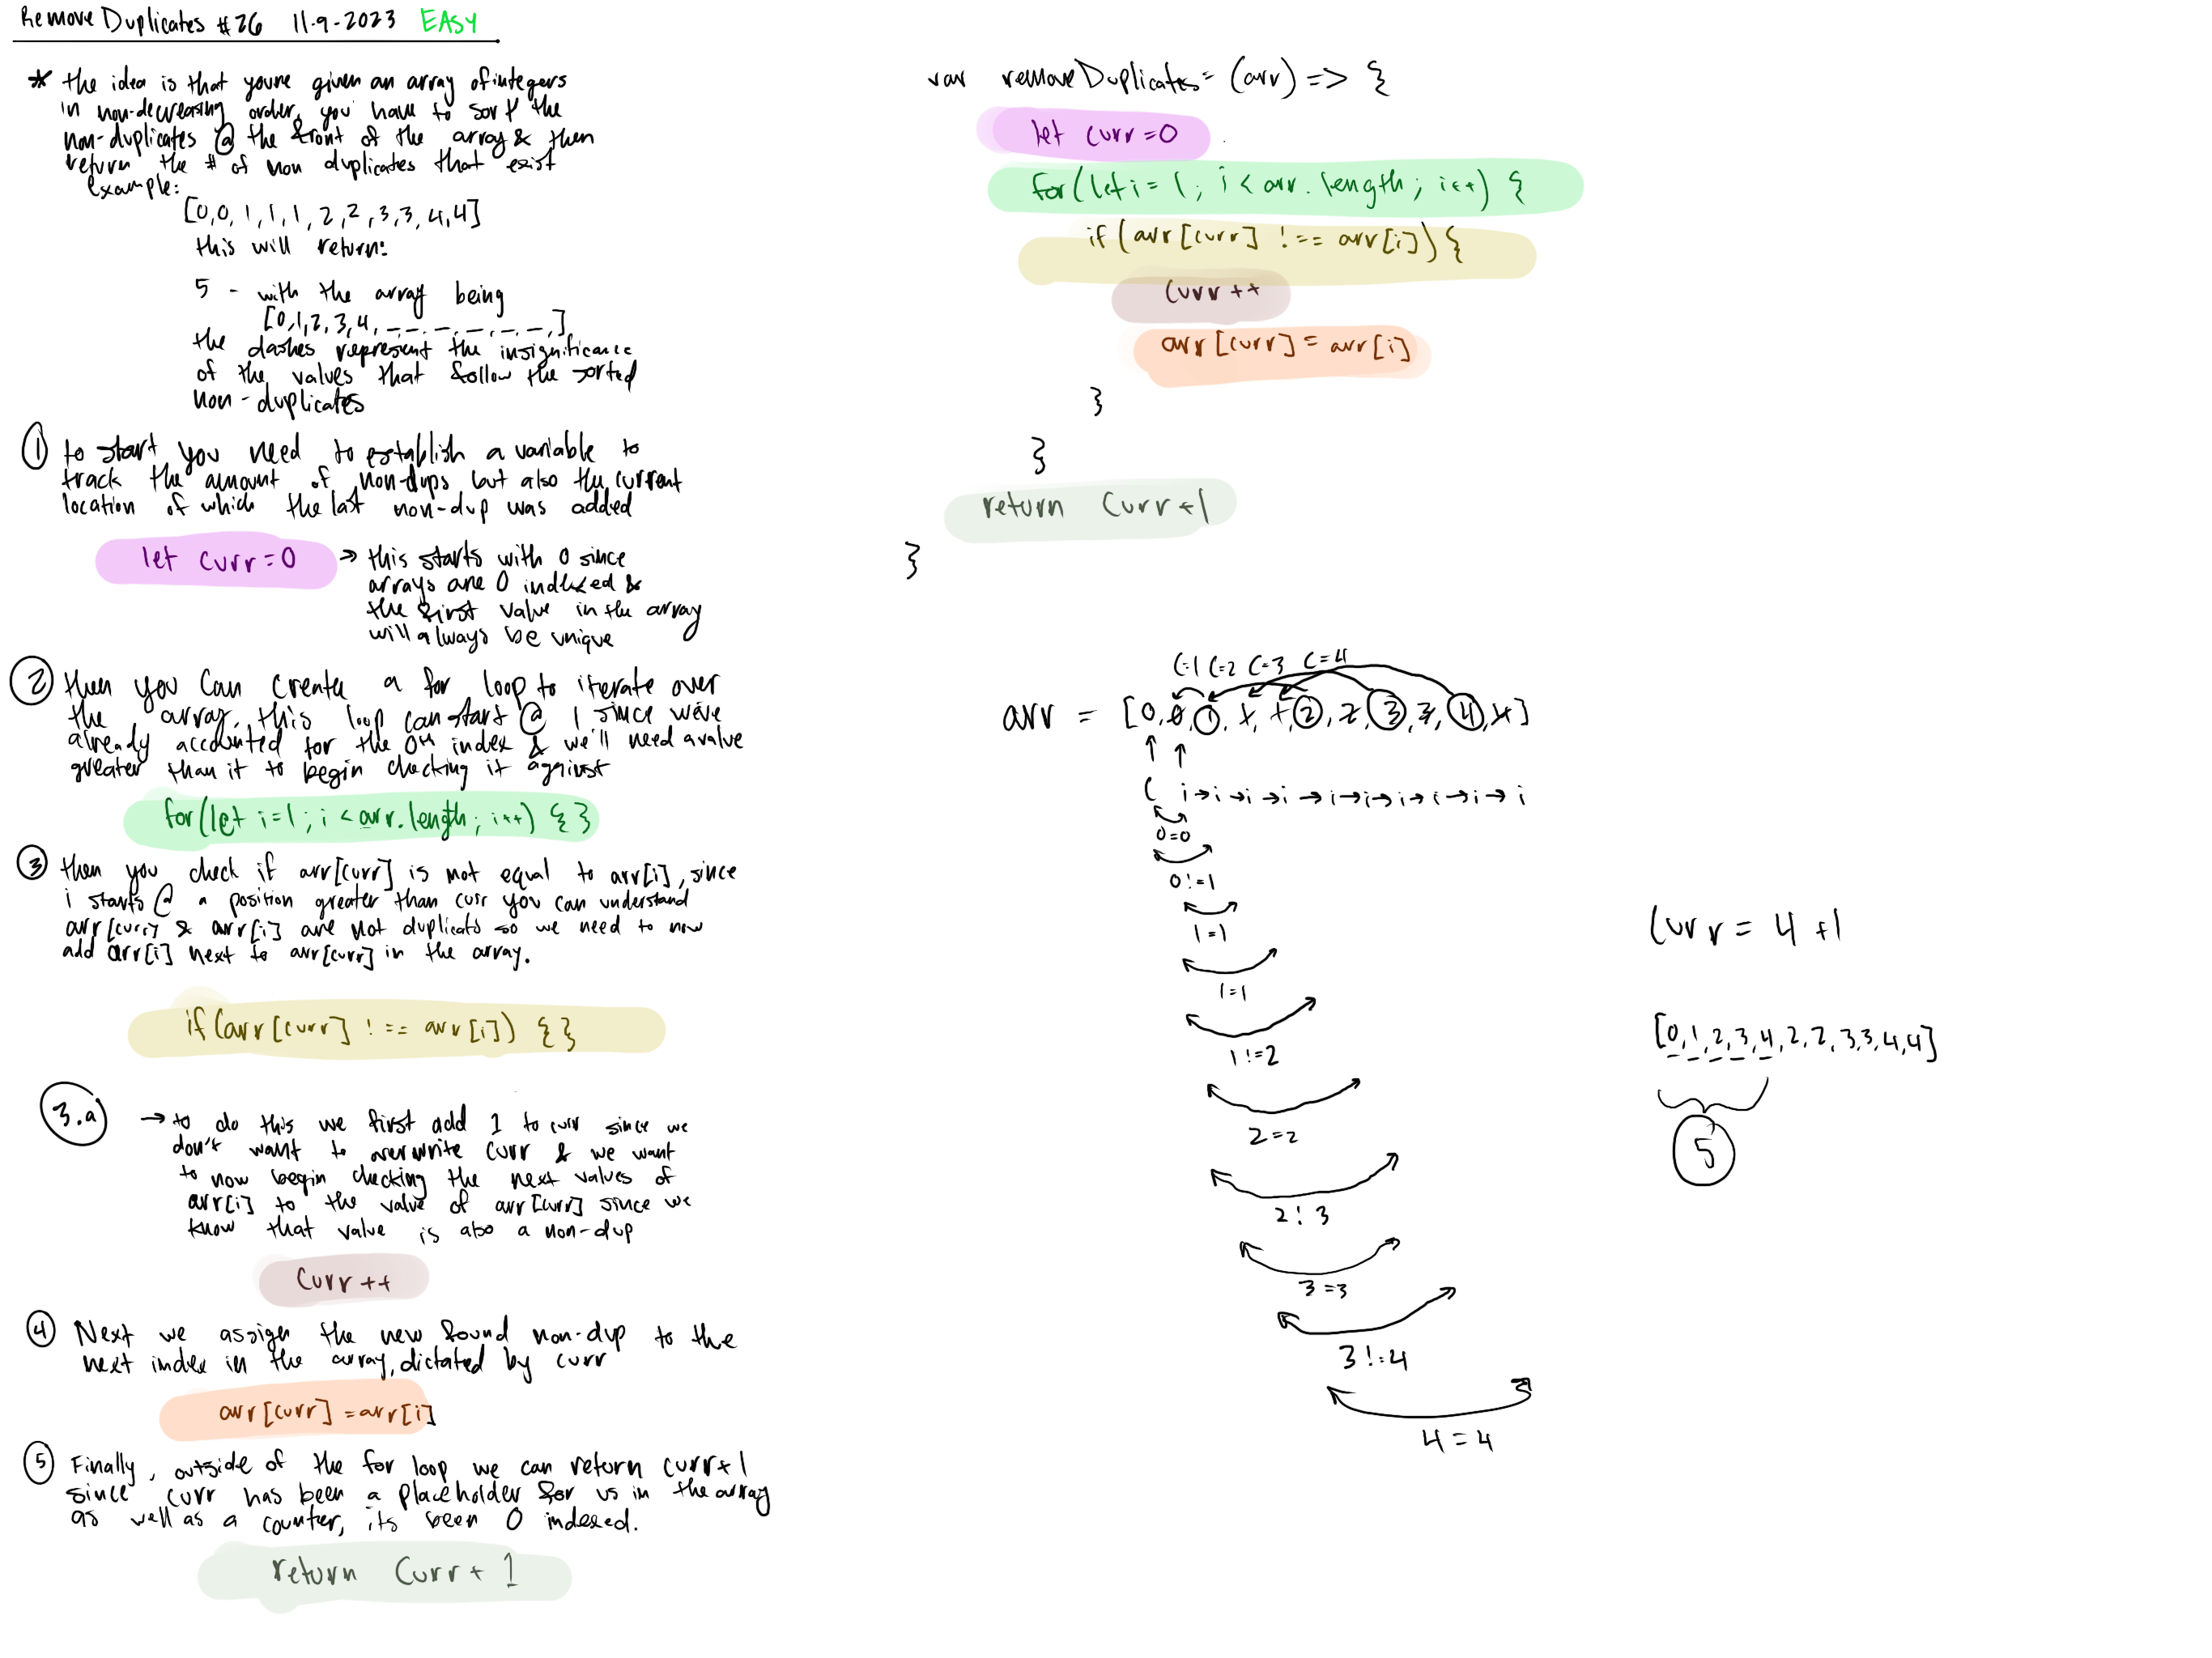 Remove Duplicates #26 11-9-2023 EASY
* the idea is that youre given an array of integers
in non-decreasing order, you have to sort the
non-duplicates @ the front of the array & then
return the # of non duplicates that exist
example:
[0,0,1,1,1,2,2,3,3,4,4]
this will return:
5 - with the array being
[0,1,2,3,4,_,_,_,_,_,_,]
the dashes represent the insignificance
of the values that follow the sorted
non-duplicates
① to start you need to establish a variable to
track the amount of non-dups but also the current
location of which the last non-dup was added
let curr=0 → this starts with 0 since
arrays are 0 indexed &
the first value in the array
will always be unique
② then you can create a for loop to iterate over
the array, this loop can start @ 1 since we've
already accounted for the 0th index & we'll need a value
greater than it to begin checking it against
for(let i=1; i < arr.length; i++) { }
③ then you check if arr[curr] is not equal to arr[i], since
i starts @ a position greater than curr you can understand
arr[curr] & arr[i] are not duplicats so we need to now
add arr[i] next to arr[curr] in the array.
if(arr[curr] !== arr[i]) { }
3.a → to do this we first add 1 to curr since we
don't want to overwrite curr & we want
to now begin checking the next values of
arr[i] to the value of arr[curr] since we
know that value is also a non-dup
curr++
④ Next we assign the new found non-dup to the
next index in the array, dictated by curr
arr[curr] = arr[i]
⑤ Finally, outside of the for loop we can return curr+1
since curr has been a placeholder for us in the array
as well as a counter, its been 0 indexed.
return curr + 1
var removeDuplicates = (arr) => {
let curr=0
for(let i = 1; i < arr.length; i++) {
if(arr[curr] !== arr[i]) {
curr++
arr[curr] = arr[i]
}
}
return curr+1
}
C=1 C=2 C=3 C=4
arr = [0,0,1,1,1,2,2,3,3,4,4]
C i→i→i→i→i→i→i→i→i→i
0=0
0!=1
1=1
1=1
1!=2
2=2
2! 3
3=3
3!=4
4=4
curr = 4 +1
[0,1,2,3,4,2,2,3,3,4,4]
5